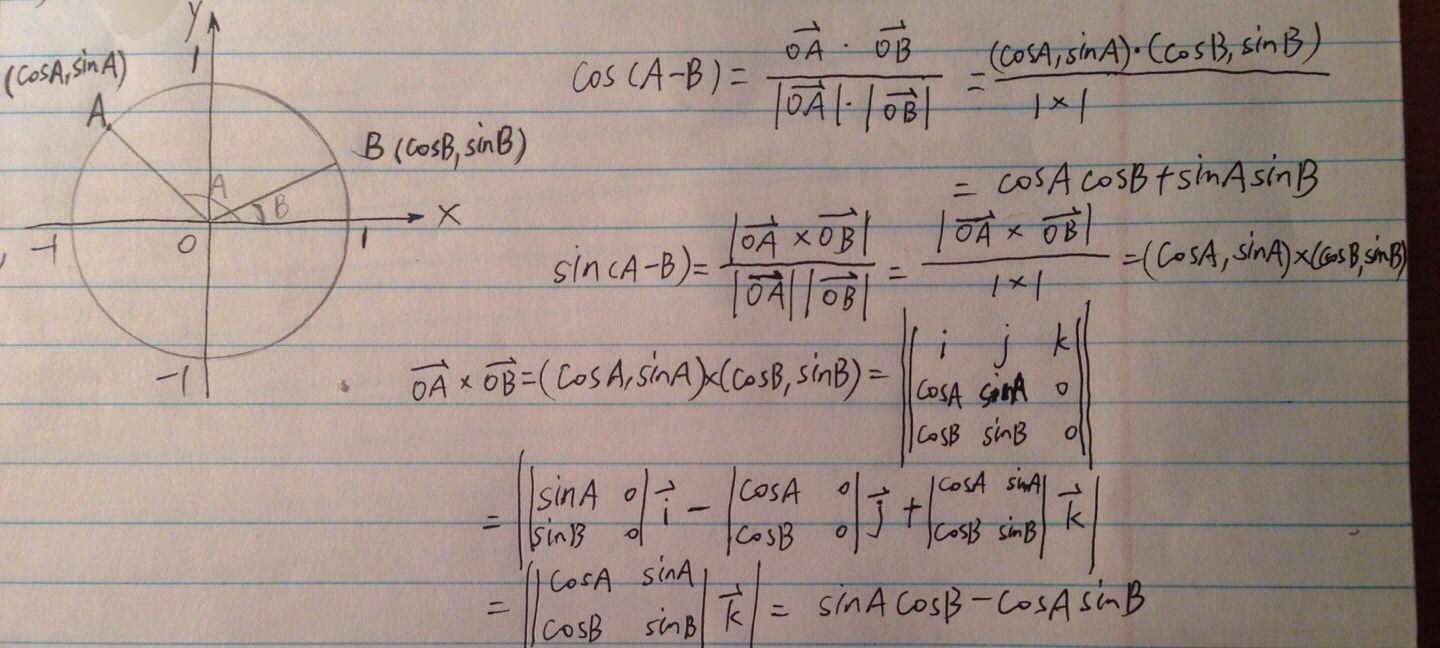 y
1
(cosA, sinA)
A
B (cosB, sinB)
A
B
x
-1
0
1
-1
cos(A-B) = \frac{\overrightarrow{OA} \cdot \overrightarrow{OB}}{|\overrightarrow{OA}| \cdot |\overrightarrow{OB}|} = \frac{(cosA, sinA) \cdot (cosB, sinB)}{1 × 1}
= cosA cosB + sinA sinB
sin(A-B) = \frac{|\overrightarrow{OA} × \overrightarrow{OB}|}{|\overrightarrow{OA}| |\overrightarrow{OB}|} = \frac{|\overrightarrow{OA} × \overrightarrow{OB}|}{1 × 1} = (cosA, sinA) × (cosB, sinB)
\overrightarrow{OA} × \overrightarrow{OB} = (cosA, sinA) × (cosB, sinB) = || i j k ; cosA sinA 0 ; cosB sinB 0 ||
= | |sinA 0 ; sinB 0| \vec{i} - |cosA 0 ; cosB 0| \vec{j} + |cosA sinA ; cosB sinB| \vec{k} |
= | |cosA sinA ; cosB sinB| \vec{k} | = sinA cosB - cosA sinB